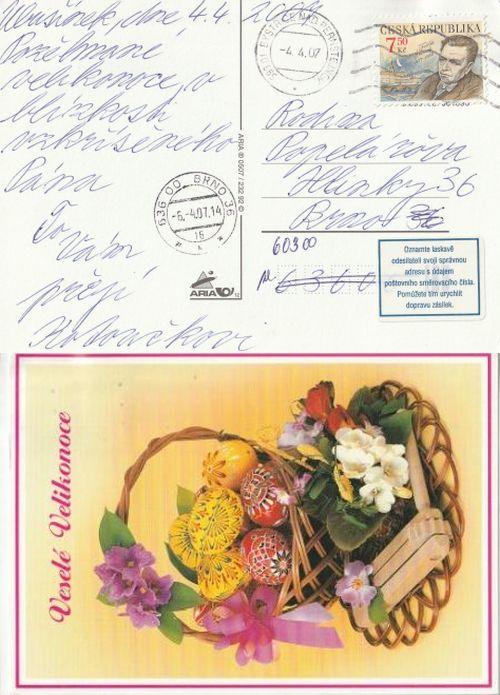 dne 4. 4. 2007
Požehnané
velikonoce v
blízkosti
vzkříšeného
Pána
To
Vám
přejí
BYSTŘICE NAD PERNŠTEJNEM
-4.4.07
ČESKÁ REPUBLIKA
7,50
Kč
Rodina
Papelářova
Hlinky 36
Brno
60300
6360
636 00 BRNO 36
-6.-4.07.14
16
ARIA ® 0507 / 232 92 ©
ARIA
12
Oznamte laskavě
odesílateli svoji správnou
adresu s údajem
poštovního směrovacího čísla.
Pomůžete tím urychlit
dopravu zásilek.
Veselé Velikonoce